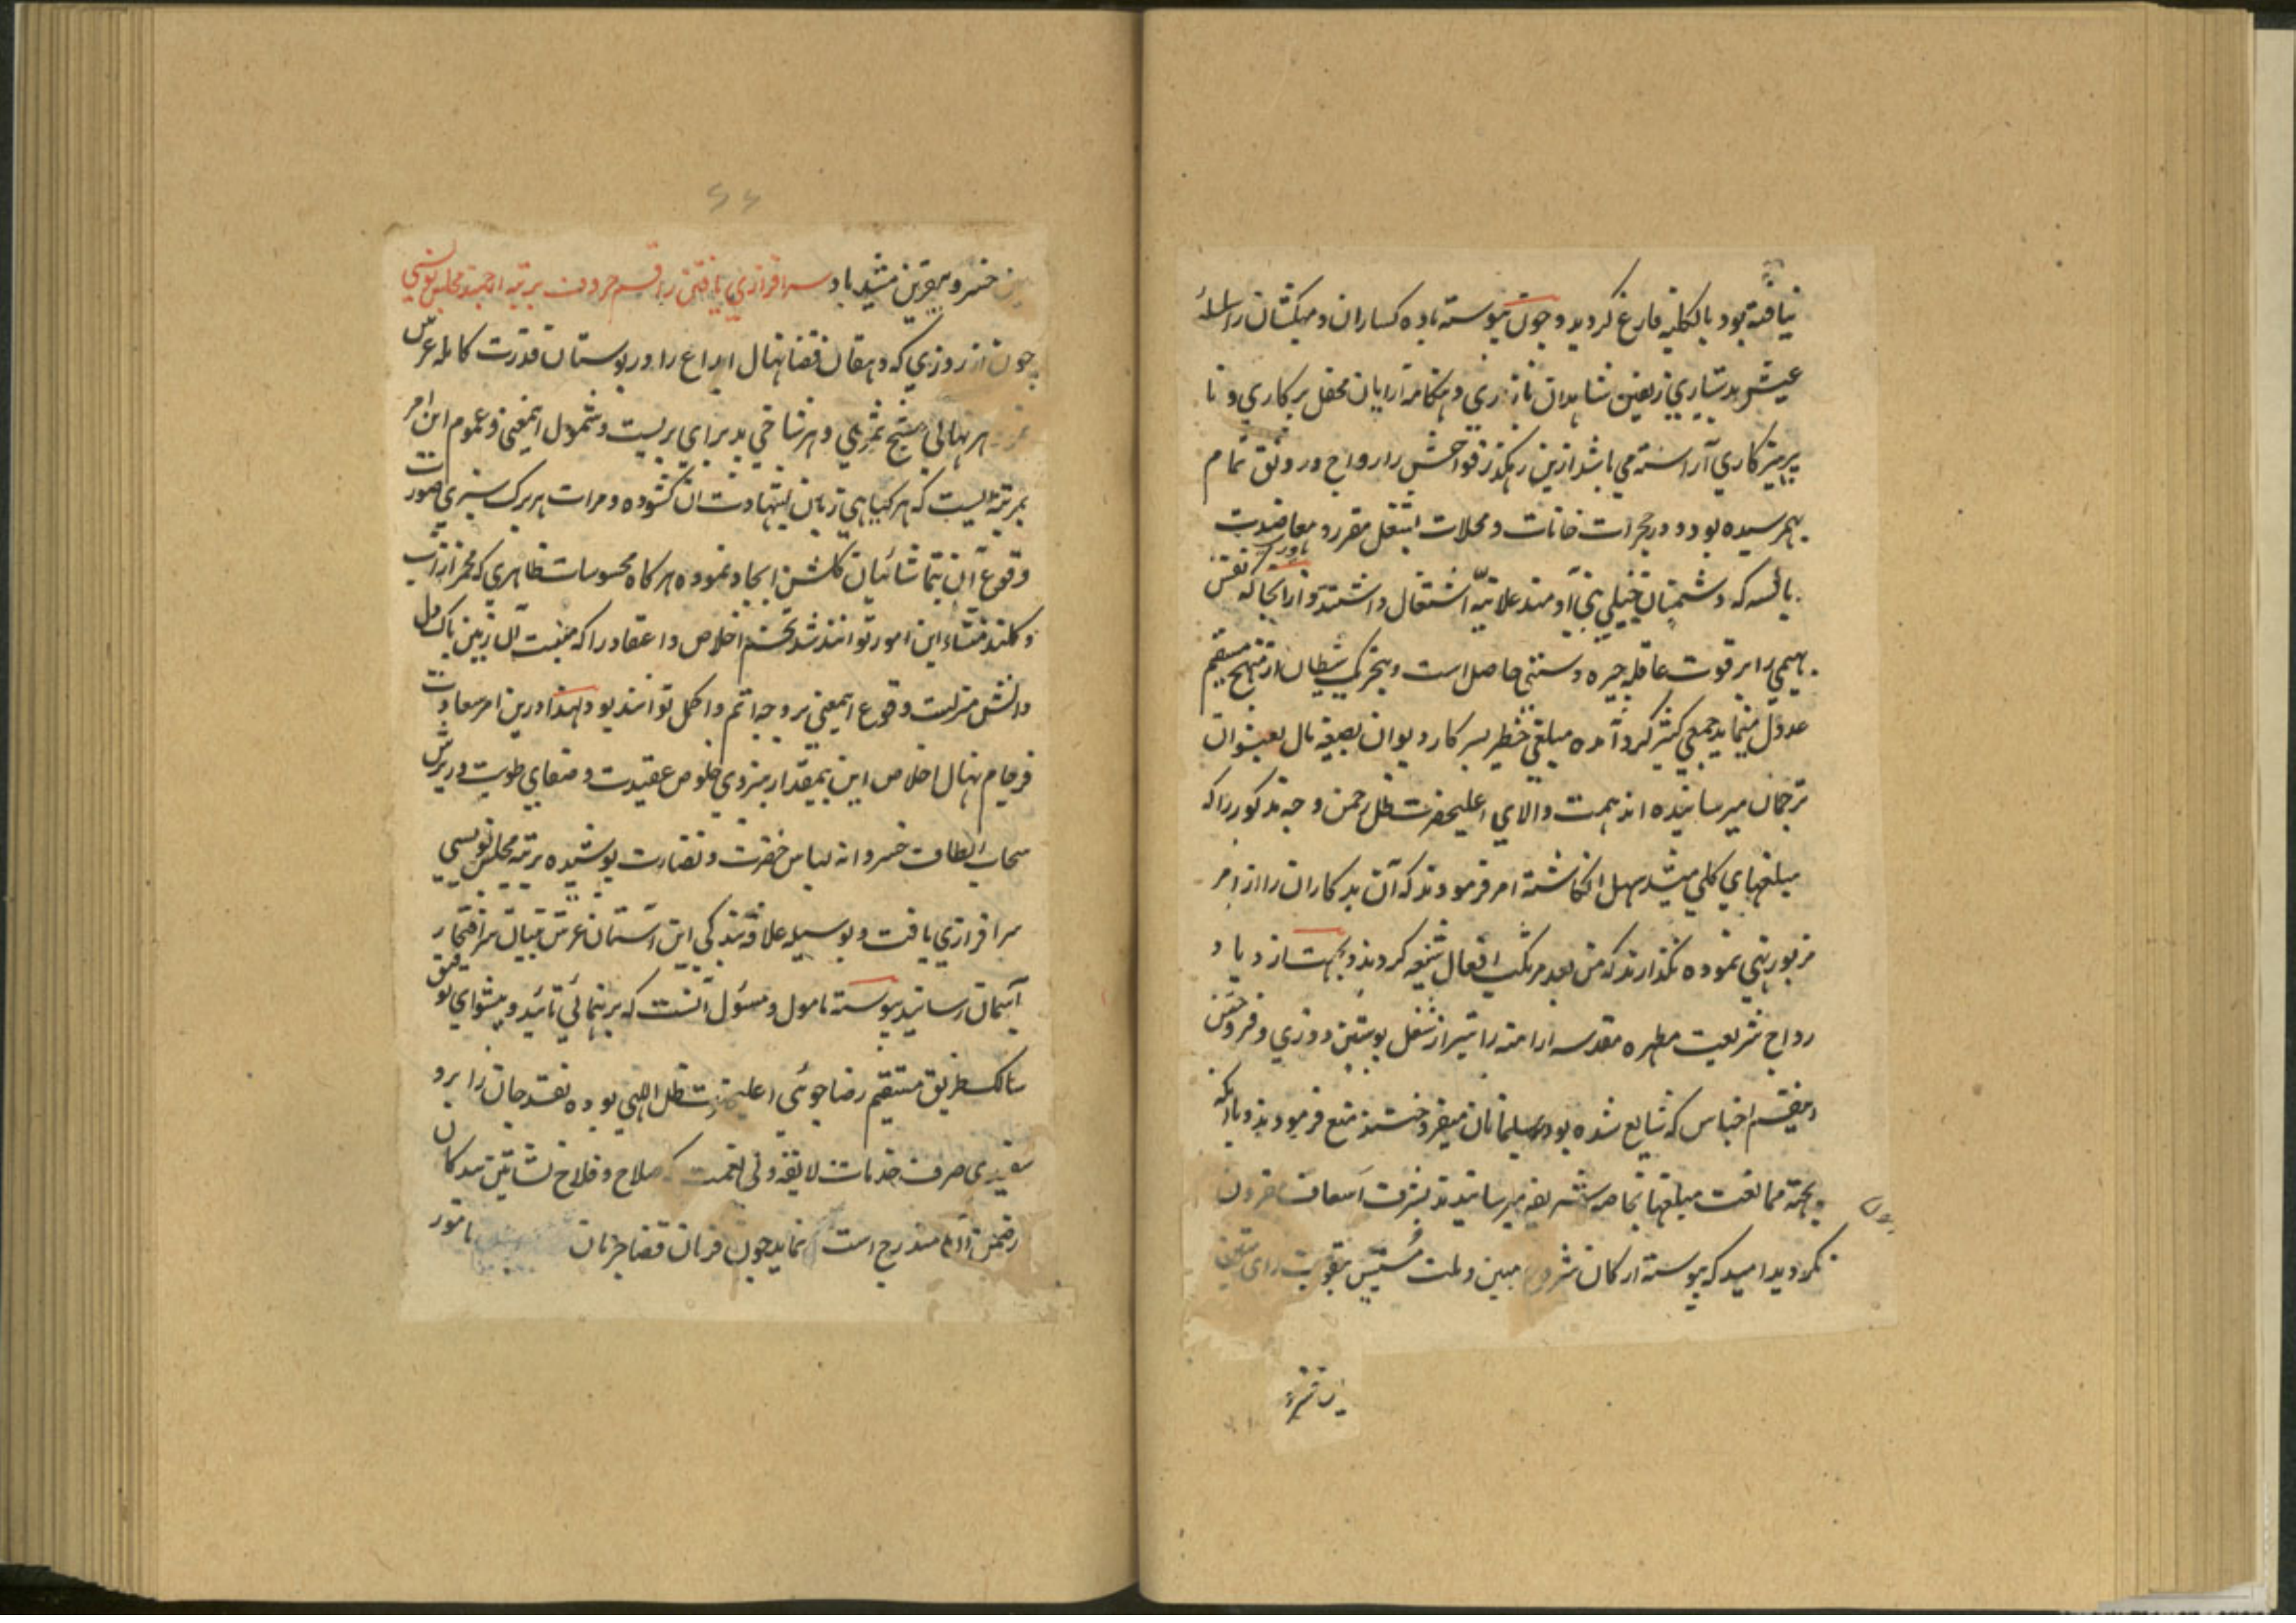 نیافته بود بالکلیه فارغ کردید و چون پیوسته باده کساران و میکشان را سلسلهٔ
عیش بدستیاری زلفین شاهدان بازاری و هنکامه آرایان محفل پرکاری و نا
پرهیزکاری آراسته می باشد ازین رهکذر فواحش را رواج و رونق تمام
بهمرسیده بود و در حجرات خانات و محلات بشغل مقرر و معاضدت
که دشمنان بنی آدمند علانیه اشتغال داشتند و از انجا که نفس
بهیمی را بر قوت عاقله چیره دستی حاصل است و بتحریک شیطان از منهج مستقیم
عدول مینماید جمعی کثیر کرد آمده مبلغی خطیر بسرکار دیوان بصیغه مال
ترجمان میرسانیده اند همت والای اعلیحضرت ظل رحمن وجه مذکور را که
مبلغهای کلی میشد سهل انکاشته امر فرمودند که آن بدکاران را از امر
مزبور نهی نموده نکذارند که من بعد مرتکب افعال شنیعه کردند و بجهت ازدیاد
رواج شریعت مطهره مقدسه ارامنه را نیز از شغل پوستین دوزی و فروختن
اجناس که شایع شده بود و بمسلمانان میفروختند منع فرمودند و با انکه
بجهة ممانعت مبلغها بخاصه شریفه میرسانیدند بشرف اسعاف مقرون
نکردید امید که پیوسته ارکان شرع مبین و ملت بتقویت رای متین
این خسرو بیقرین مشید باد سرافرازی یافتن راقم حروف برتبه ارجمند مجلس نویسی
چون از روزی که دهقان قضا نهال ابداع را در بوستان قدرت کامله غرس
هر نهالی منتج ثمری و هر شاخی پذیرای بریست و شمول اینمعنی و عموم این امر
بمرتبه ایست که هر کیاهی زبان بشهادت ان کشوده و مرات هر برک سبزی صورت
وقوع آن بتماشائیان کلشن ایجاد نموده هرکاه محسوسات ظاهری که مخمر از آب
و کلند منشاء این امور توانند شد تخم اخلاص و اعتقاد را که منبت آن زمین پاک دل
دانش منزلست وقوع اینمعنی بر وجه اتم و اکمل تواند بود لهذا درین امر سعادت
فرجام نهال اخلاص این بیمقدار بنیروی خلوص عقیدت و صفای طویت در برش
سحاب الطاف خسروانه لباس خضرت و نضارت پوشیده برتبه مجلس نویسی
سرافرازی یافت و بوسیله علاقه بندکی این آستان عرش بنیان سر افتخار
بآسمان رسانید پیوسته مامول و مسئول آنست که برهنمائی تائید و پیشوای توفیق
سالک طریق مستقیم رضا جوئی اعلیحضرت ظل اللهی بوده نقد جان را برو
سفیدی صرف خدمات لایقه ولی نعمت که صلاح و فلاح نشاتین بندکان
در ضمن آن مندرج است نماید چون فرمان قضا جریان مامور